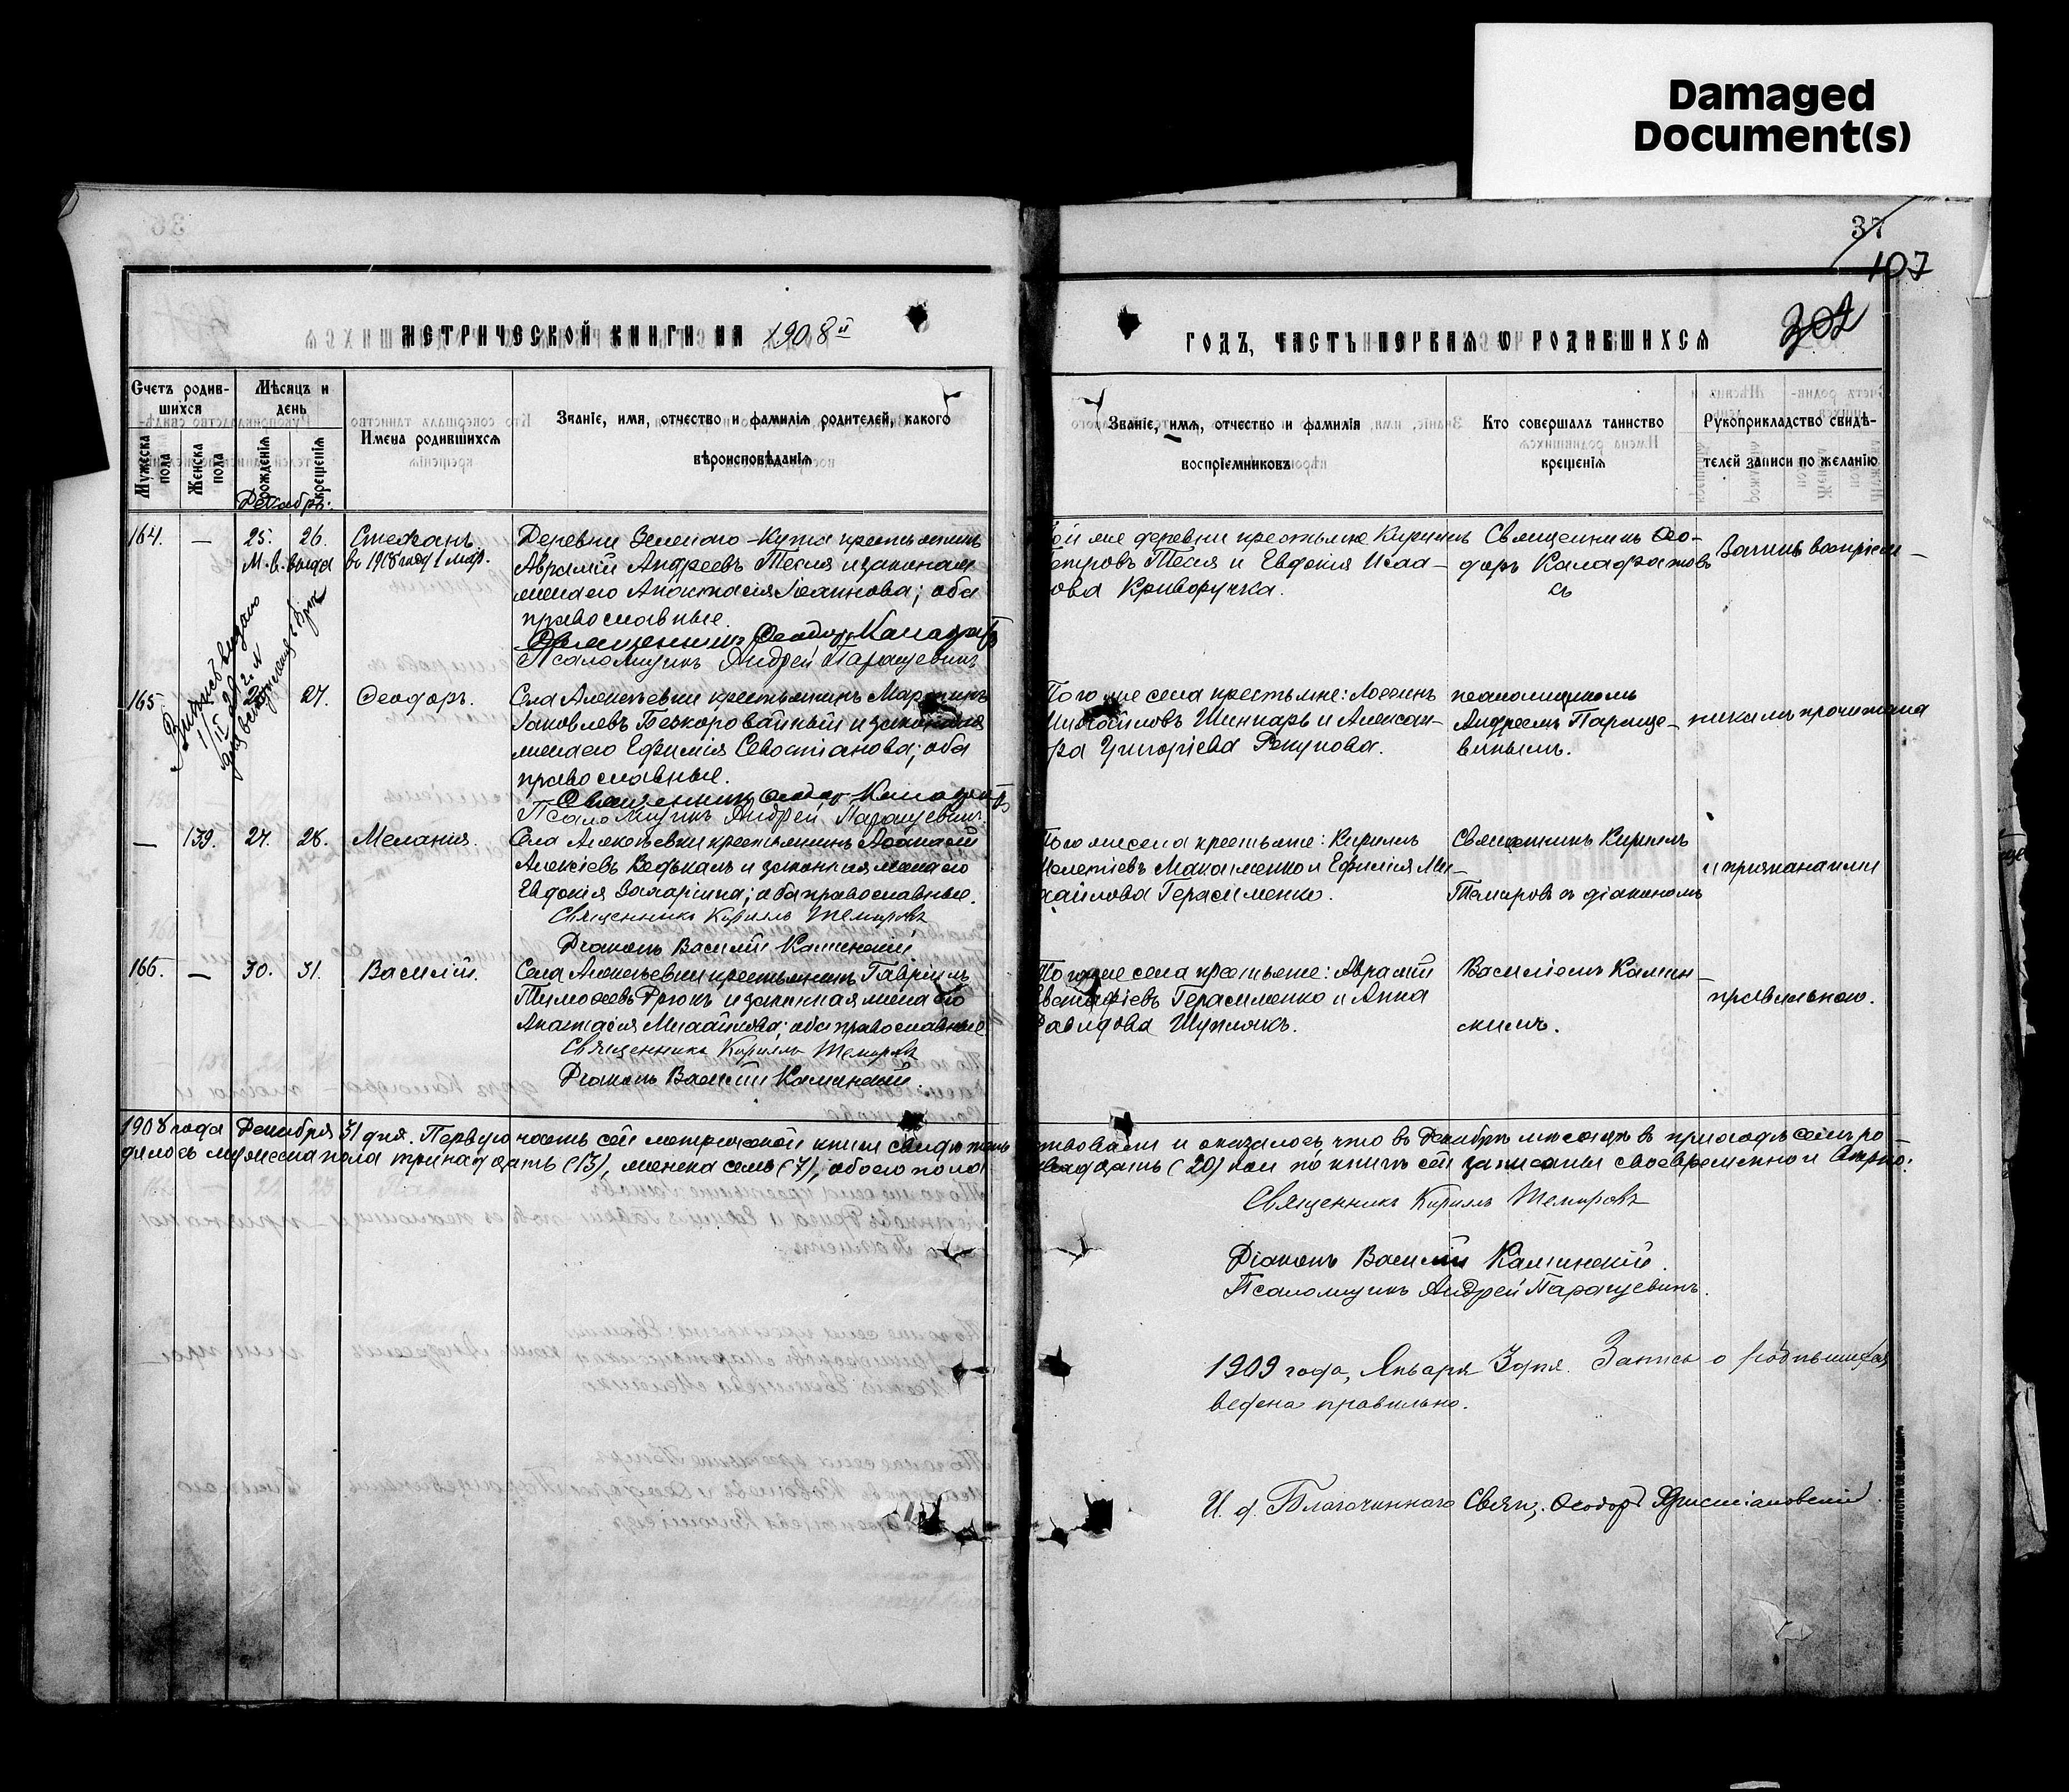 Damaged
Document(s)
37
107
302
МЕТРИЧЕСКОЙ КНИГИ НА 1908й
ГОДЪ, ЧАСТЬ ПЕРВАЯ О РОДИВШИХСЯ
Счетъ родив-
шихся
Мужеска пола
Женска пола
Мѣсяцъ и
день
рожденія
крещенія
Имена родившихся
Званіе, имя, отчество и фамилія родителей, какого
вѣроисповѣданія
Званіе, имя, отчество и фамилія
воспріемниковъ
Кто совершалъ таинство
крещенія
Рукоприкладство свидѣ-
телей записи по желанію
Декабрь.
164. — 25. 26. Стефанъ
М. в. выдан въ 1918 году 1 мар.
Деревни Зеленаго-Кута крестьянинъ
Аврамій Андреевъ Тесля и законная
жена его Анастасія Іоаннова; оба
православные.
Священникъ Феодоръ
Псаломщикъ Андрей Паращевинъ
той же деревни крестьяне Кириллъ
Петровъ Тесля и Евдокія Исаа-
кова Криворучка.
Священникъ Фео-
доръ Калафатовъ
съ
Запись воспріем-
165 27. Феодоръ.
Села Алексѣевки крестьянинъ
Іаковлевъ и законная
жена его Ефимія Севостіанова; оба
православные.
Священникъ Феодоръ
Псаломщикъ Андрей Паращевинъ.
Того же села крестьяне:
Шинкарь и Алексан-
дра Григоріева Рекунова.
псаломщикомъ
Андреемъ Параще-
винымъ.
никамъ прочитана
— 139. 27. 28. Меланія.
Села Алексѣевки крестьянинъ Афанасій
Алексіевъ и законная жена его
Евдокія Захаріина; оба православные.
Священникъ Кириллъ Темировъ
Діаконъ Василій Каминскій
Того же села крестьяне: Кириллъ
Мелетіевъ Максименко и Ефимія Ми-
хайлова Герасименко.
Священникъ Кириллъ
Темировъ съ діакономъ
и признана ими
166. — 30. 31. Василій.
Села Алексѣевки крестьянинъ Гавріилъ
Тимофеевъ и законная жена его
Анастасія Михайлова; оба православные
Священникъ Кириллъ Темировъ
Діаконъ Василій Каминскій.
Того же села крестьяне: Аврамій
Евстафіевъ Герасименко и Анна
Давидова Шуплякъ.
Василіемъ Камин-
скимъ.
правильною.
1908 года Декабря 31 дня. Первую часть сей метрической книги свидѣтель
ствовали и оказалось, что въ Декабрѣ мѣсяцѣ въ приходѣ семъ ро-
дилось мужеска пола тринадцать (13), женска семь (7), обоего пола
двадцать (20) кои по книгѣ сей записаны своевременно и вѣрно:
Священникъ Кириллъ Темировъ
Діаконъ Василій Каминскій.
Псаломщикъ Андрей Паращевинъ.
1909 года, Января 3 дня. Запись о родившихся
ведена правильно.
И. д. Благочиннаго Свящ. Феодоръ Христіановскій